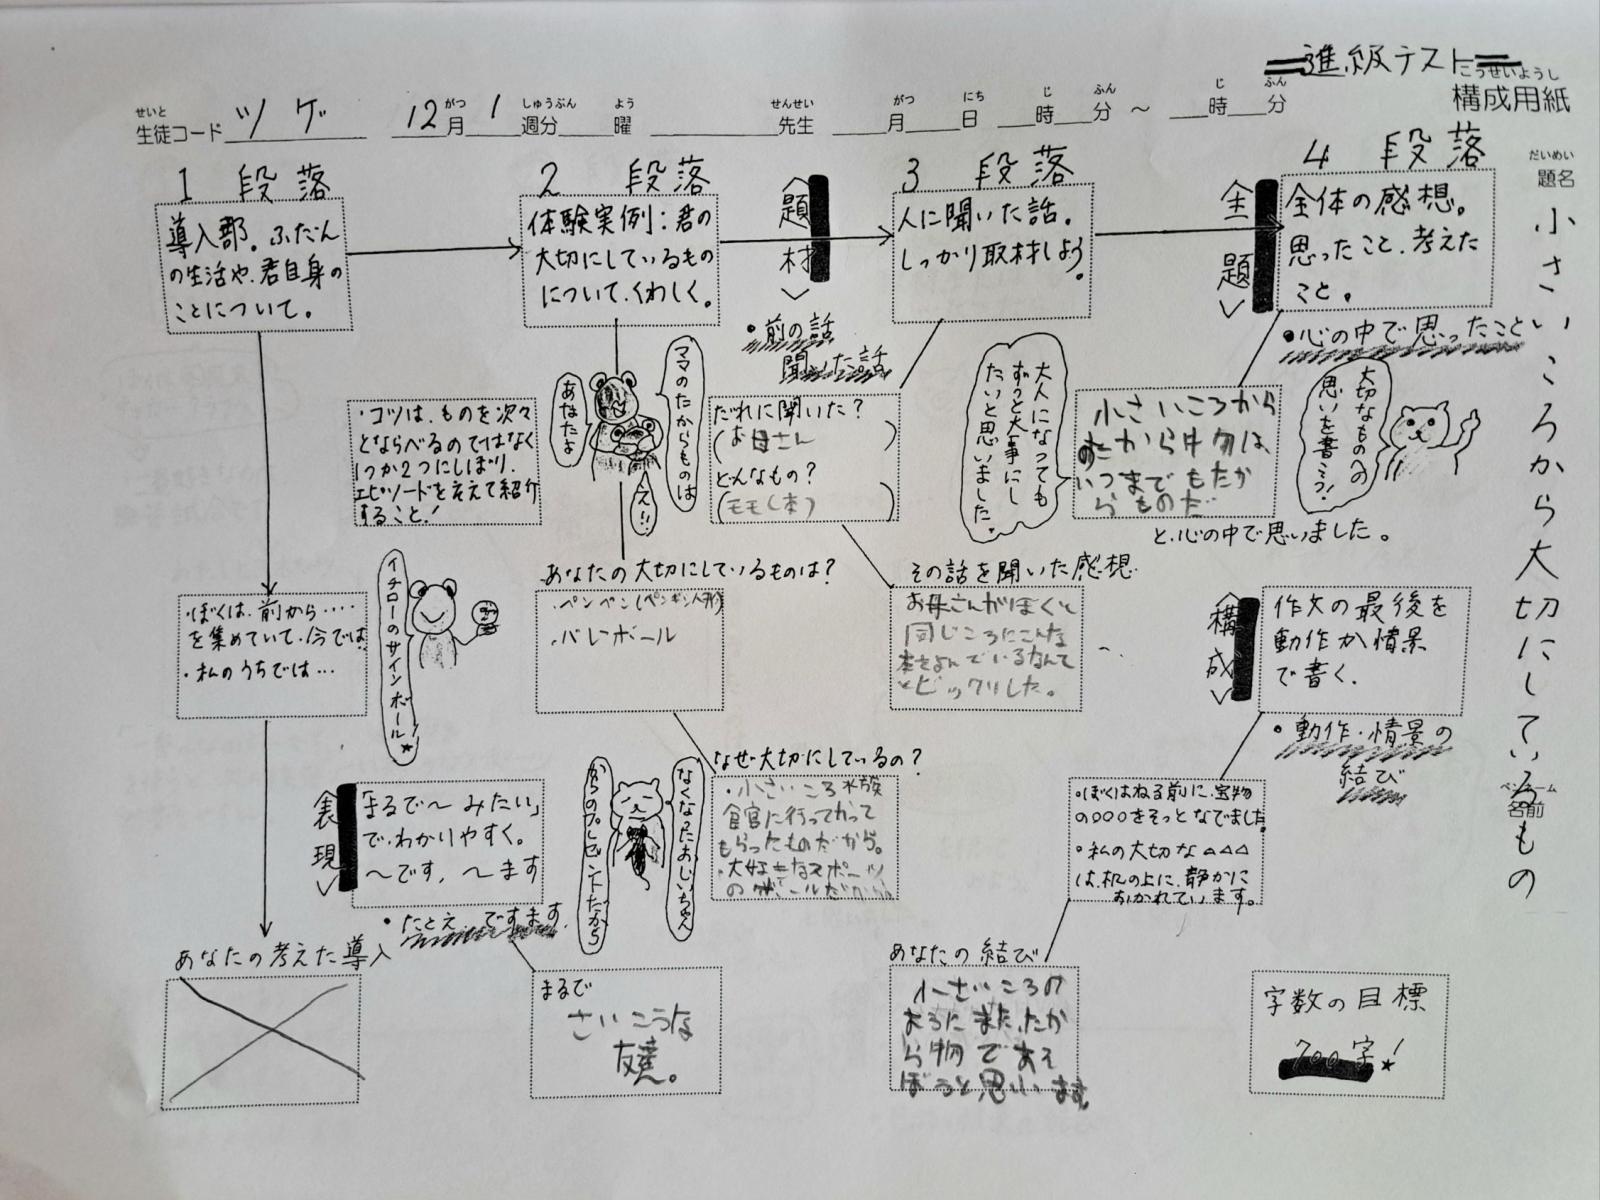 進級テスト
こうせいようし
構成用紙
せいと がつ しゅうぶん よう せんせい がつ にち じ ふん じ ふん
生徒コード ツゲ 12月 1 週分 曜 先生 月 日 時 分 ～ 時 分
だいめい
題名
小さいころから大切にしているもの
ペンネーム
名前
1 段落
導入部。ふだん
の生活や、君自身の
ことについて。
2 段落
体験実例:君の
大切にしているもの
について、くわしく。
〈題材〉
3 段落
人に聞いた話。
しっかり取材しよう。
〈主題〉
4 段落
全体の感想。
思ったこと、考えた
こと。
・前の話
聞いた話
・心の中で思ったこと
・コツは、ものを次々
とならべるのではなく
1つか2つにしぼり、
エピソードをそえて紹介
すること!
あなたよ
ママのたからものは
え!!
だれに聞いた?
(お母さん)
どんなもの?
(モモ(本))
大人になっても
ずっと大事にし
たいと思いました。
小さいころから
のたから物は、
いつまでもたか
らものだ
と、心の中で思いました。
大切なものへの
思いを書こう!
・ぼくは、前から‥‥
を集めていて、今では
・私のうちでは…
イチローのサインボール!★
あなたの大切にしているものは?
・ペンペン(ペンギン人形)
・バレーボール
その話を聞いた感想
お母さんがぼくと
同じころにこんな
本をよんでいるなんて
とビックリした。
〈構成〉
作文の最後を
動作か情景
で書く。
・動作・情景の
結び
〈表現〉
「まるで～みたい」
で、わかりやすく。
～です、～ます
・たとえ、ですます
なくなったおじいちゃん
からのプレゼントだから
なぜ大切にしているの?
・小さいころ水族
官に行ってかって
もらったものだから。
・大好きなスポーツ
・ぼくはねる前に、宝物
の○○○をそっとなでました。
・私の大切な△△△
は、机の上に、静かに
おかれています。
あなたの考えた導入
まるで
さいこうな
友達。
あなたの結び
小さいころの
ようにまた、たか
ら物であそ
ぼうと思います。
字数の目標
700字!★